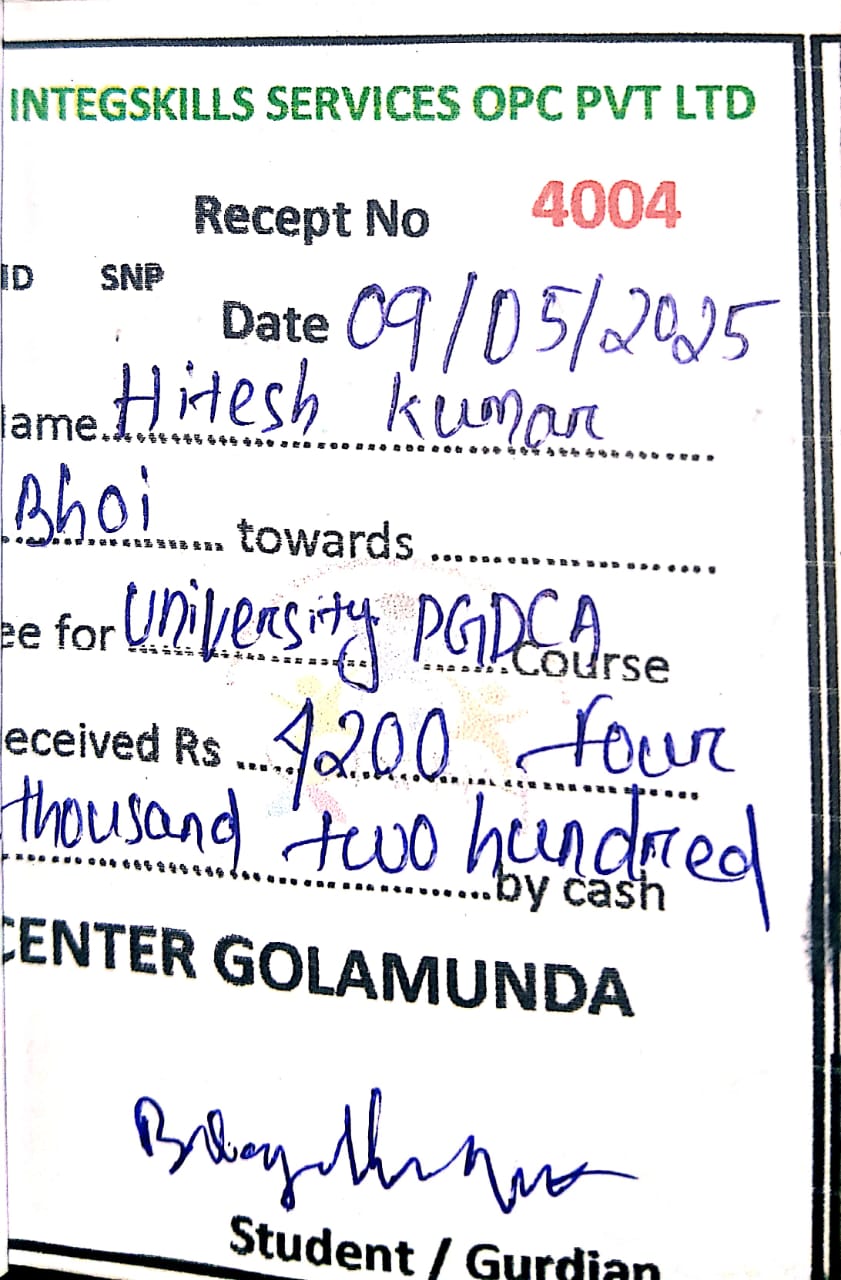 INTEGSKILLS SERVICES OPC PVT LTD
Recept No 4004
ID SNP
Date 09/05/2025
ame Hitesh Kumar
Bhoi towards
ee for University PGDCA Course
eceived Rs 4200 four
thousand two hundred
by cash
CENTER GOLAMUNDA
Student / Gurdian